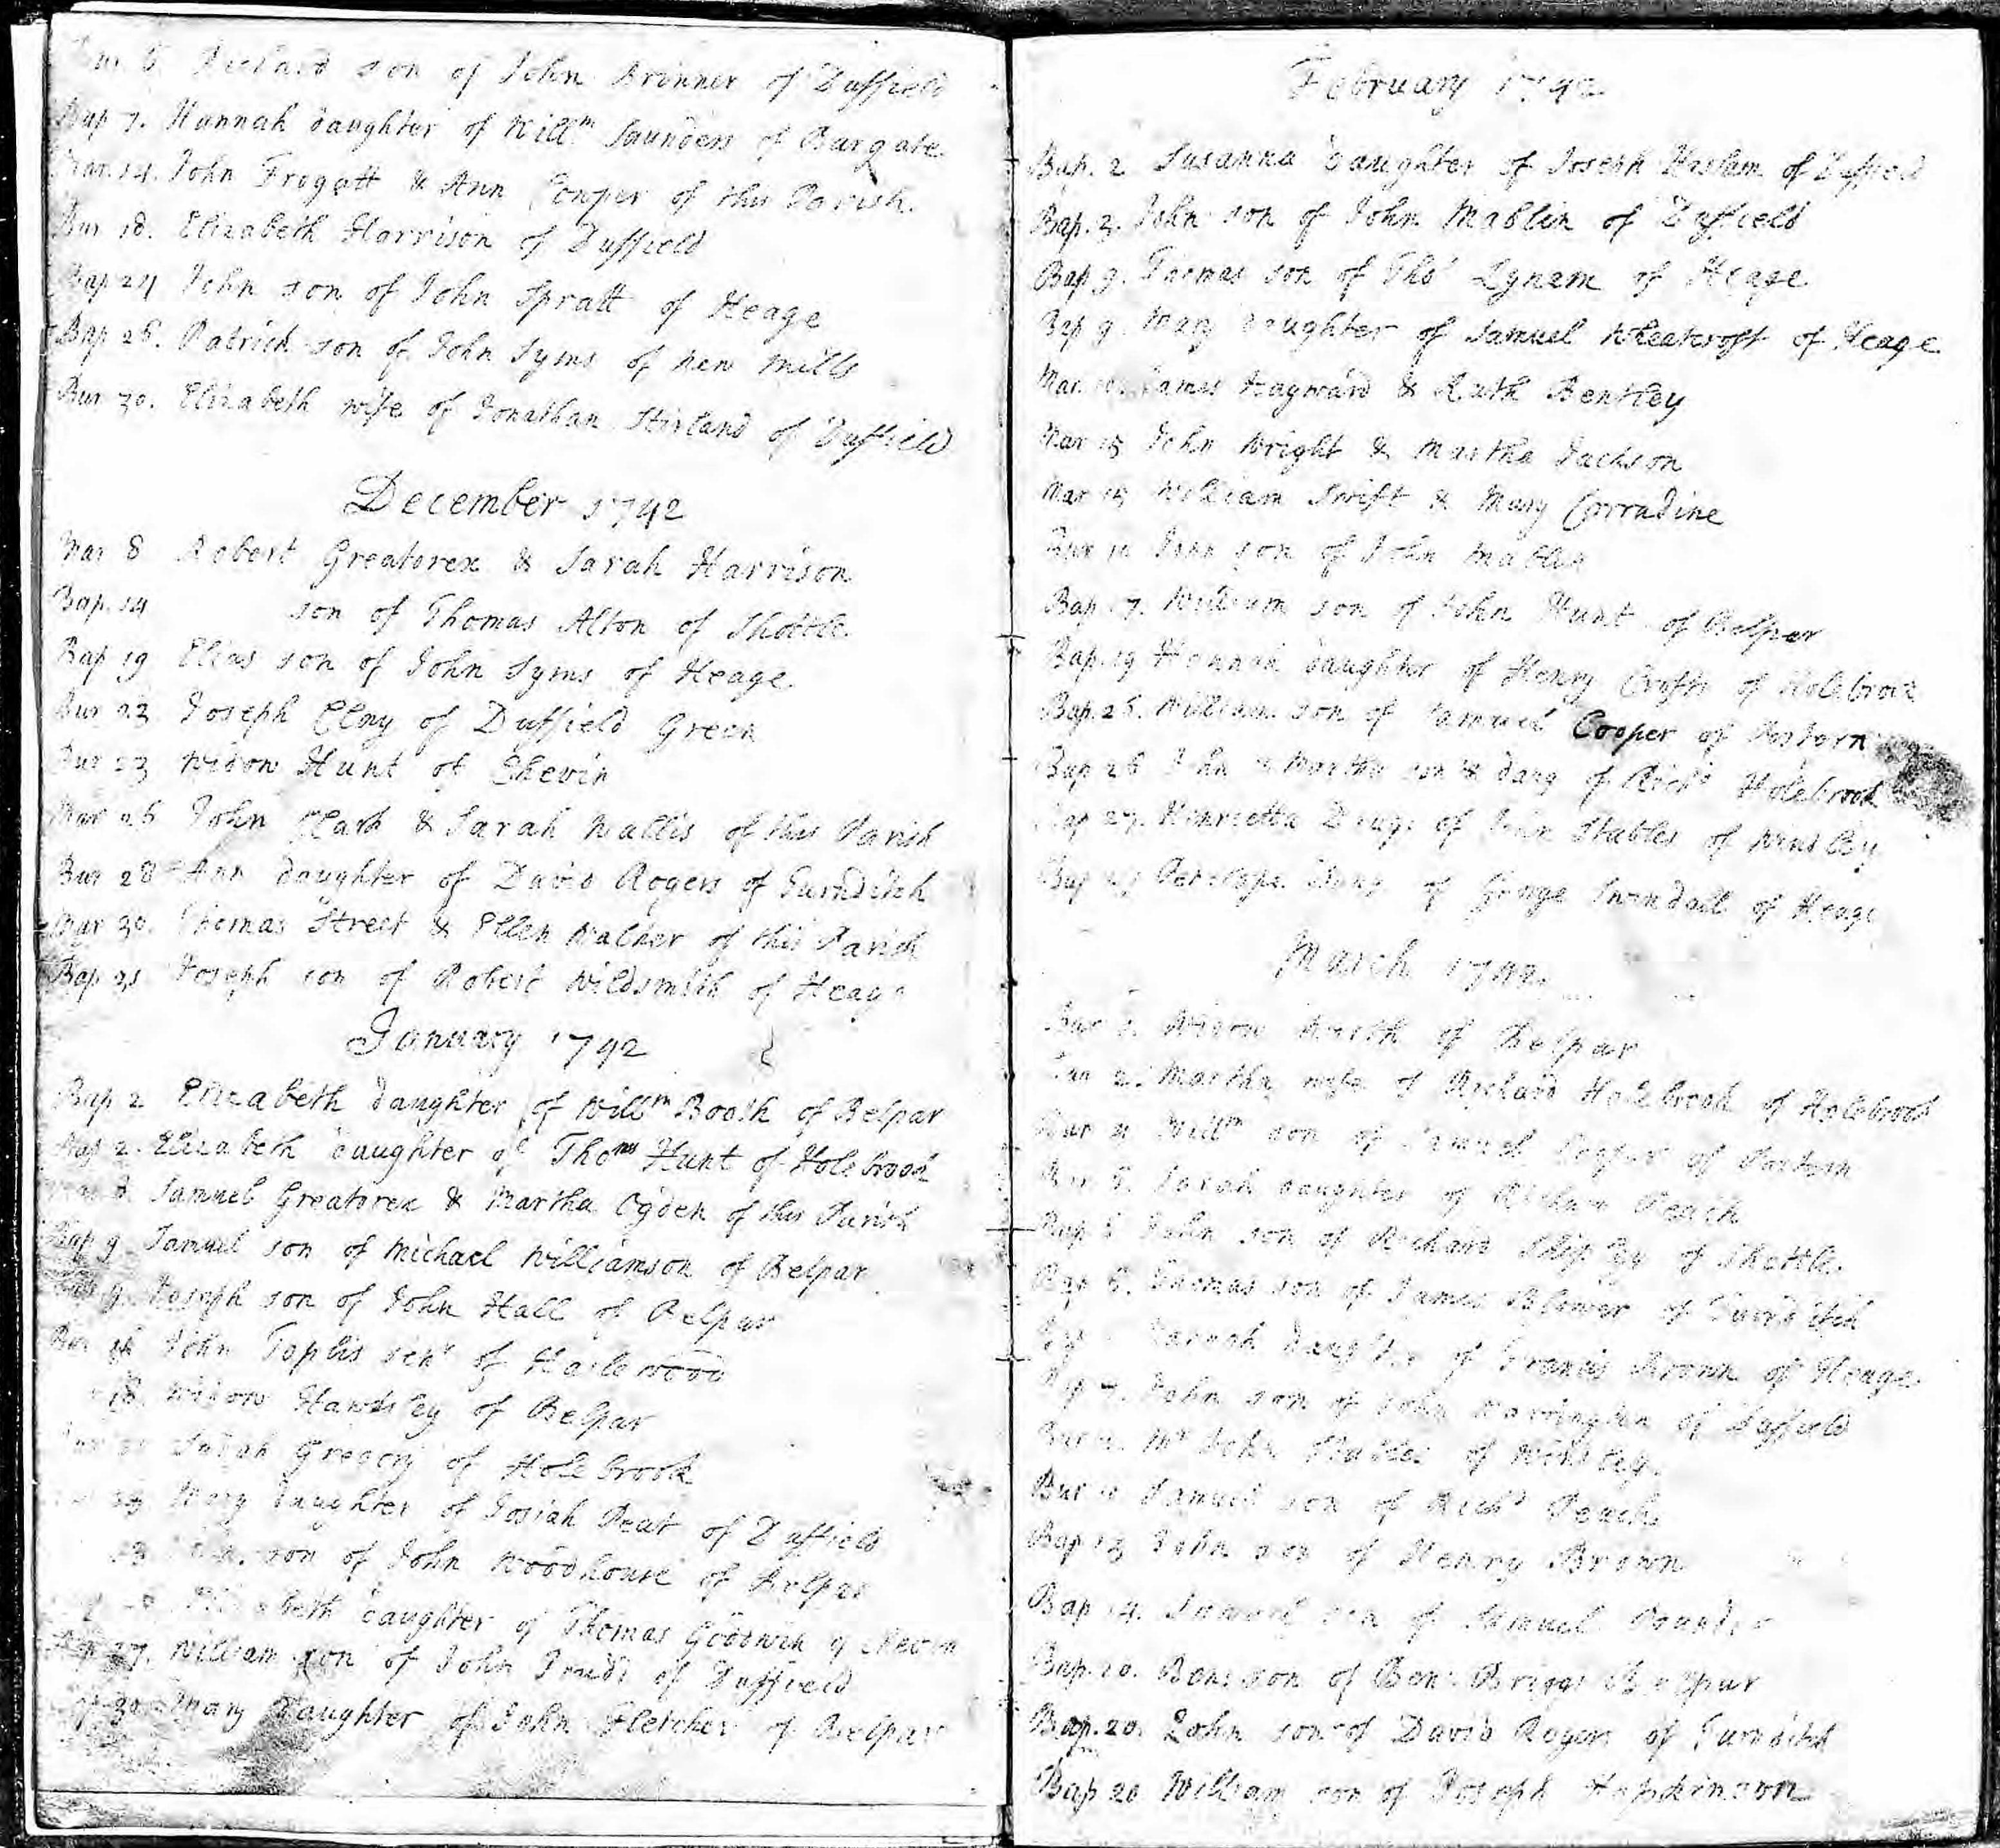 Bur 5. Richard son of John Brinner of Duffield
Bap 7. Hannah daughter of Willm Saunders of Burgate
Mar. 14. John Frogatt & Ann Cooper of this Parish.
Bur 18. Elizabeth Harrison of Duffield
Bap 24 John son of John Spratt of Heage
Bap 26. Patrick son of John Syms of New Mills
Bur 30. Elizabeth wife of Jonathan Stirland of Duffield
December 1742
Mar 8 Robert Greatorex & Sarah Harrison
Bap. 14 son of Thomas Alton of Shottle
Bap 19 Elias son of John Syms of Heage.
Bur 23 Joseph Clay of Duffield Green
Bur 23 Widow Hunt of Chevin
Mar 26 John Clark & Sarah Wallis of this Parish
Bur 28 Ann daughter of David Rogers of Turnditch
Mar 30. Thomas Street & Ellen Walker of this Parish
Bap 31 Joseph son of Robert Wildsmith of Heage
January 1742
Bap 2 Elizabeth daughter of Willm Booth of Belpar
Bap 2. Elizabeth daughter of Thoms Hunt of Holebrook
8. Samuel Greatorex & Martha Ogden of this Parish
Bap 9 Samuel son of Michael Williamson of Belpar
9. Joseph son of John Hall of Belpar
Bur 16 John Toplis senr of Hailewood
18. Widow Hawksley of Belpar
Sarah Gregory of Holebrook
23 Mary daughter of Josiah Peat of Duffield
23 son of John Woodhouse of Belpar
Elizabeth daughter of Thomas Goodwin of
Bap 27. William son of John of Duffield
Bap 30 Mary Daughter of John Fletcher of Belpar
February 1742
Bap. 2 Susanna daughter of Joseph Haslam of Duffield
Bap. 3. John son of John Mablin of Duffield
Bap 9. Thomas son of Thos Lynam of Heage
Bap 9. Mary Daughter of Samuel Wheatcroft of Heage
Mar. James Hayward & Ruth Bentley
Mar 15 John Wright & Martha Jackson
Mar 15 William Swift & Mary Corradine
Bur John son of John Mablin
Bap 17. William son of John Hunt of Belper
Bap. 19 Hannah daughter of Henry Crofts of Holebrook
Bap. 26. William son of Samuel Cooper of Postern
Bap 26 John & Martha son & daug of Richd Holebrook
Bap 27. Henrietta Daug: of John Stables of Winsley
Bap 27 Penelope Daug of George Swindall of Heage
March 1742.
Bur Widow of Belpar
Bur 2. Martha wife of Richard Holebrook of Holebrook
Bur 4 Willm son of Samuel Cooper of Postern
Bur 5. Sarah daughter of William Peach
Bap 5 John son of Richard Shipley of Shottle.
Bap 6. Thomas son of James Blower of Turnditch
Bap Hannah daughter of Francis Brown of Heage
Bap 7. John son of John Warrington of Duffield
Bur Mr John Stables of Winsley.
Bur 10 Samuel son of Richd Peach
Bap 13 John son of Henry Brown
Bap 14. Samuel son of Samuel
Bap. 20. Ben: son of Ben: Briggs Belpar
Bap. 20. John son of David Rogers of Turnditch
Bap 20 William son of Joseph Hopkinson